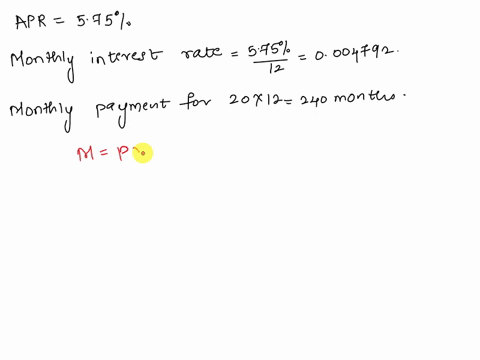 APR = 5.75%.
Monthly interest rate = 5.75%/12 = 0.004792.
Monthly payment for 20×12 = 240 months.
M = P